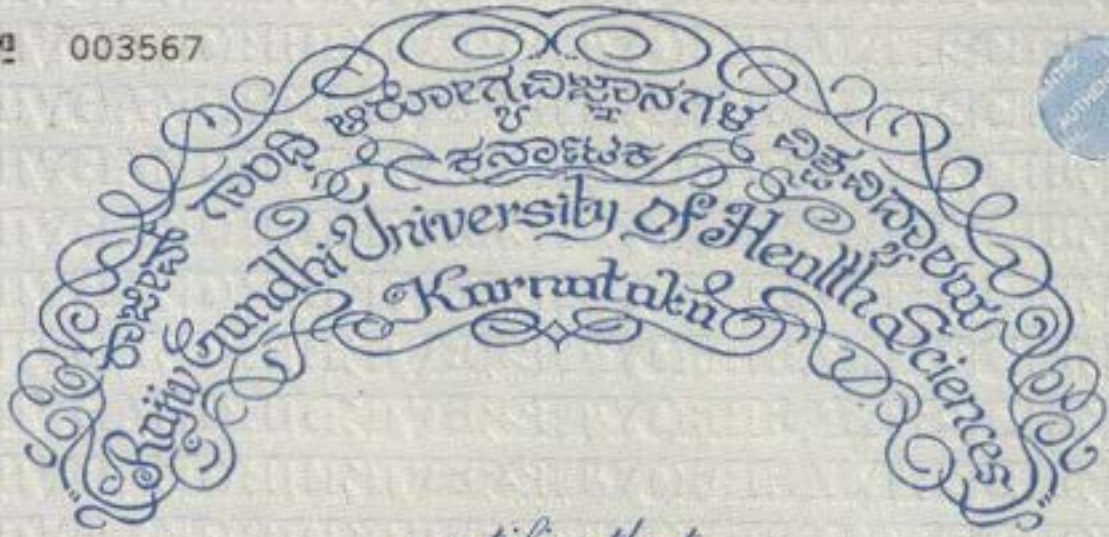 003567
ರಾಜೀವ್ ಗಾಂಧಿ ಆರೋಗ್ಯವಿಜ್ಞಾನಗಳ ವಿಶ್ವವಿದ್ಯಾಲಯ
ಕರ್ನಾಟಕ
Rajiv Gandhi University of Health Sciences
Karnataka
that